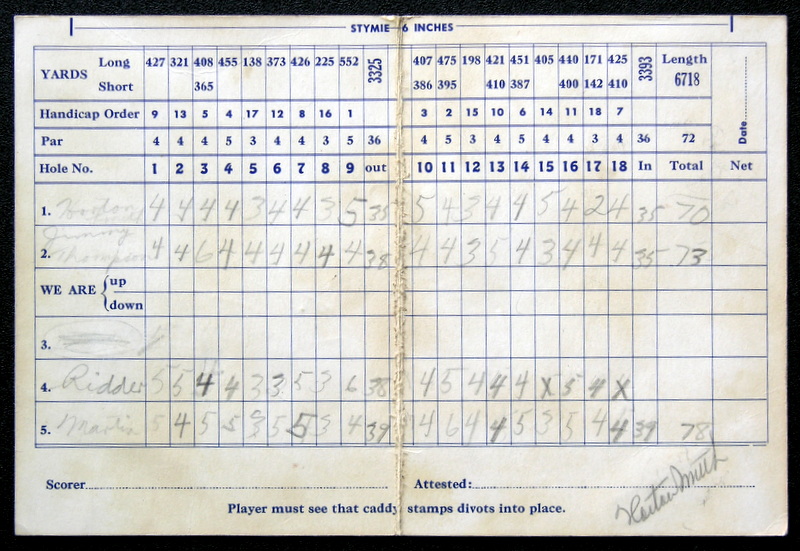 STYMIE—6 INCHES
YARDS Long 427 321 408 455 138 373 426 225 552 3325 407 475 198 421 451 405 440 171 425 3393 Length 6718
Short 365 386 395 410 387 400 142 410
Handicap Order 9 13 5 4 17 12 8 16 1 3 2 15 10 6 14 11 18 7
Par 4 4 4 5 3 4 4 3 5 36 4 5 3 4 5 4 4 3 4 36 72
Date
Hole No. 1 2 3 4 5 6 7 8 9 out 10 11 12 13 14 15 16 17 18 In Total Net
1. Horton 4 4 4 4 3 4 4 3 5 35 5 4 3 4 4 5 4 2 4 35 70
2. Jimmy Thompson 4 4 6 4 4 4 4 4 4 38 4 4 3 5 4 3 4 4 4 35 73
WE ARE up
down
3.
4. Ridder 5 5 4 4 3 3 5 3 6 38 4 5 4 4 4 X 5 4 X
5. Martin 5 4 5 5 3 5 5 3 4 39 4 6 4 4 5 3 5 4 4 39 78
Scorer Attested: Horton Smith
Player must see that caddy stamps divots into place.